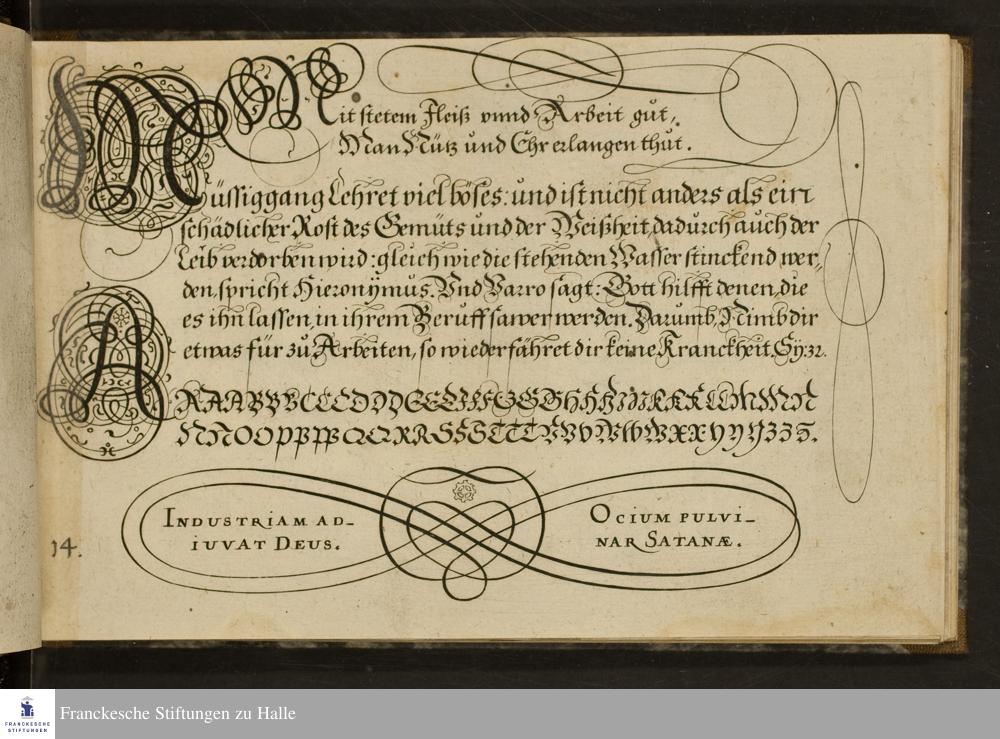 Mit stetem Fleiß vnnd Arbeit gůt,
Man Nütz und Ehr erlangen thůt.
Müssiggang Lehret viel böses: und ist nicht anders als ein
schädlicher Rost des Gemüts und der Weißheit, dadurch auch der
Leib verdorben wird: gleich wie die stehenden Wasser stinckend wer„
den, spricht Hieronÿmus. Vnd Varro sagt: Gott hilfft denen, die
es ihn lassen, in ihrem Beruff sawer werden. Darumb, Nimb dir
etwas für zů Arbeiten, so wiederfähret dir keine Kranckheit. Sÿ: 32.
A
AAABBBCCCDDDEEFFFGGGHHHJJKKKLLMMN
NNOOPPPPQQRRSSSTTTVVVWWWXXYYYZZZ.
INDUSTRIAM AD–
IUVAT DEUS.
OCIUM PULVI–
NAR SATANÆ.
14.
FRANCKESCHE
STIFTUNGEN
Franckesche Stiftungen zu Halle